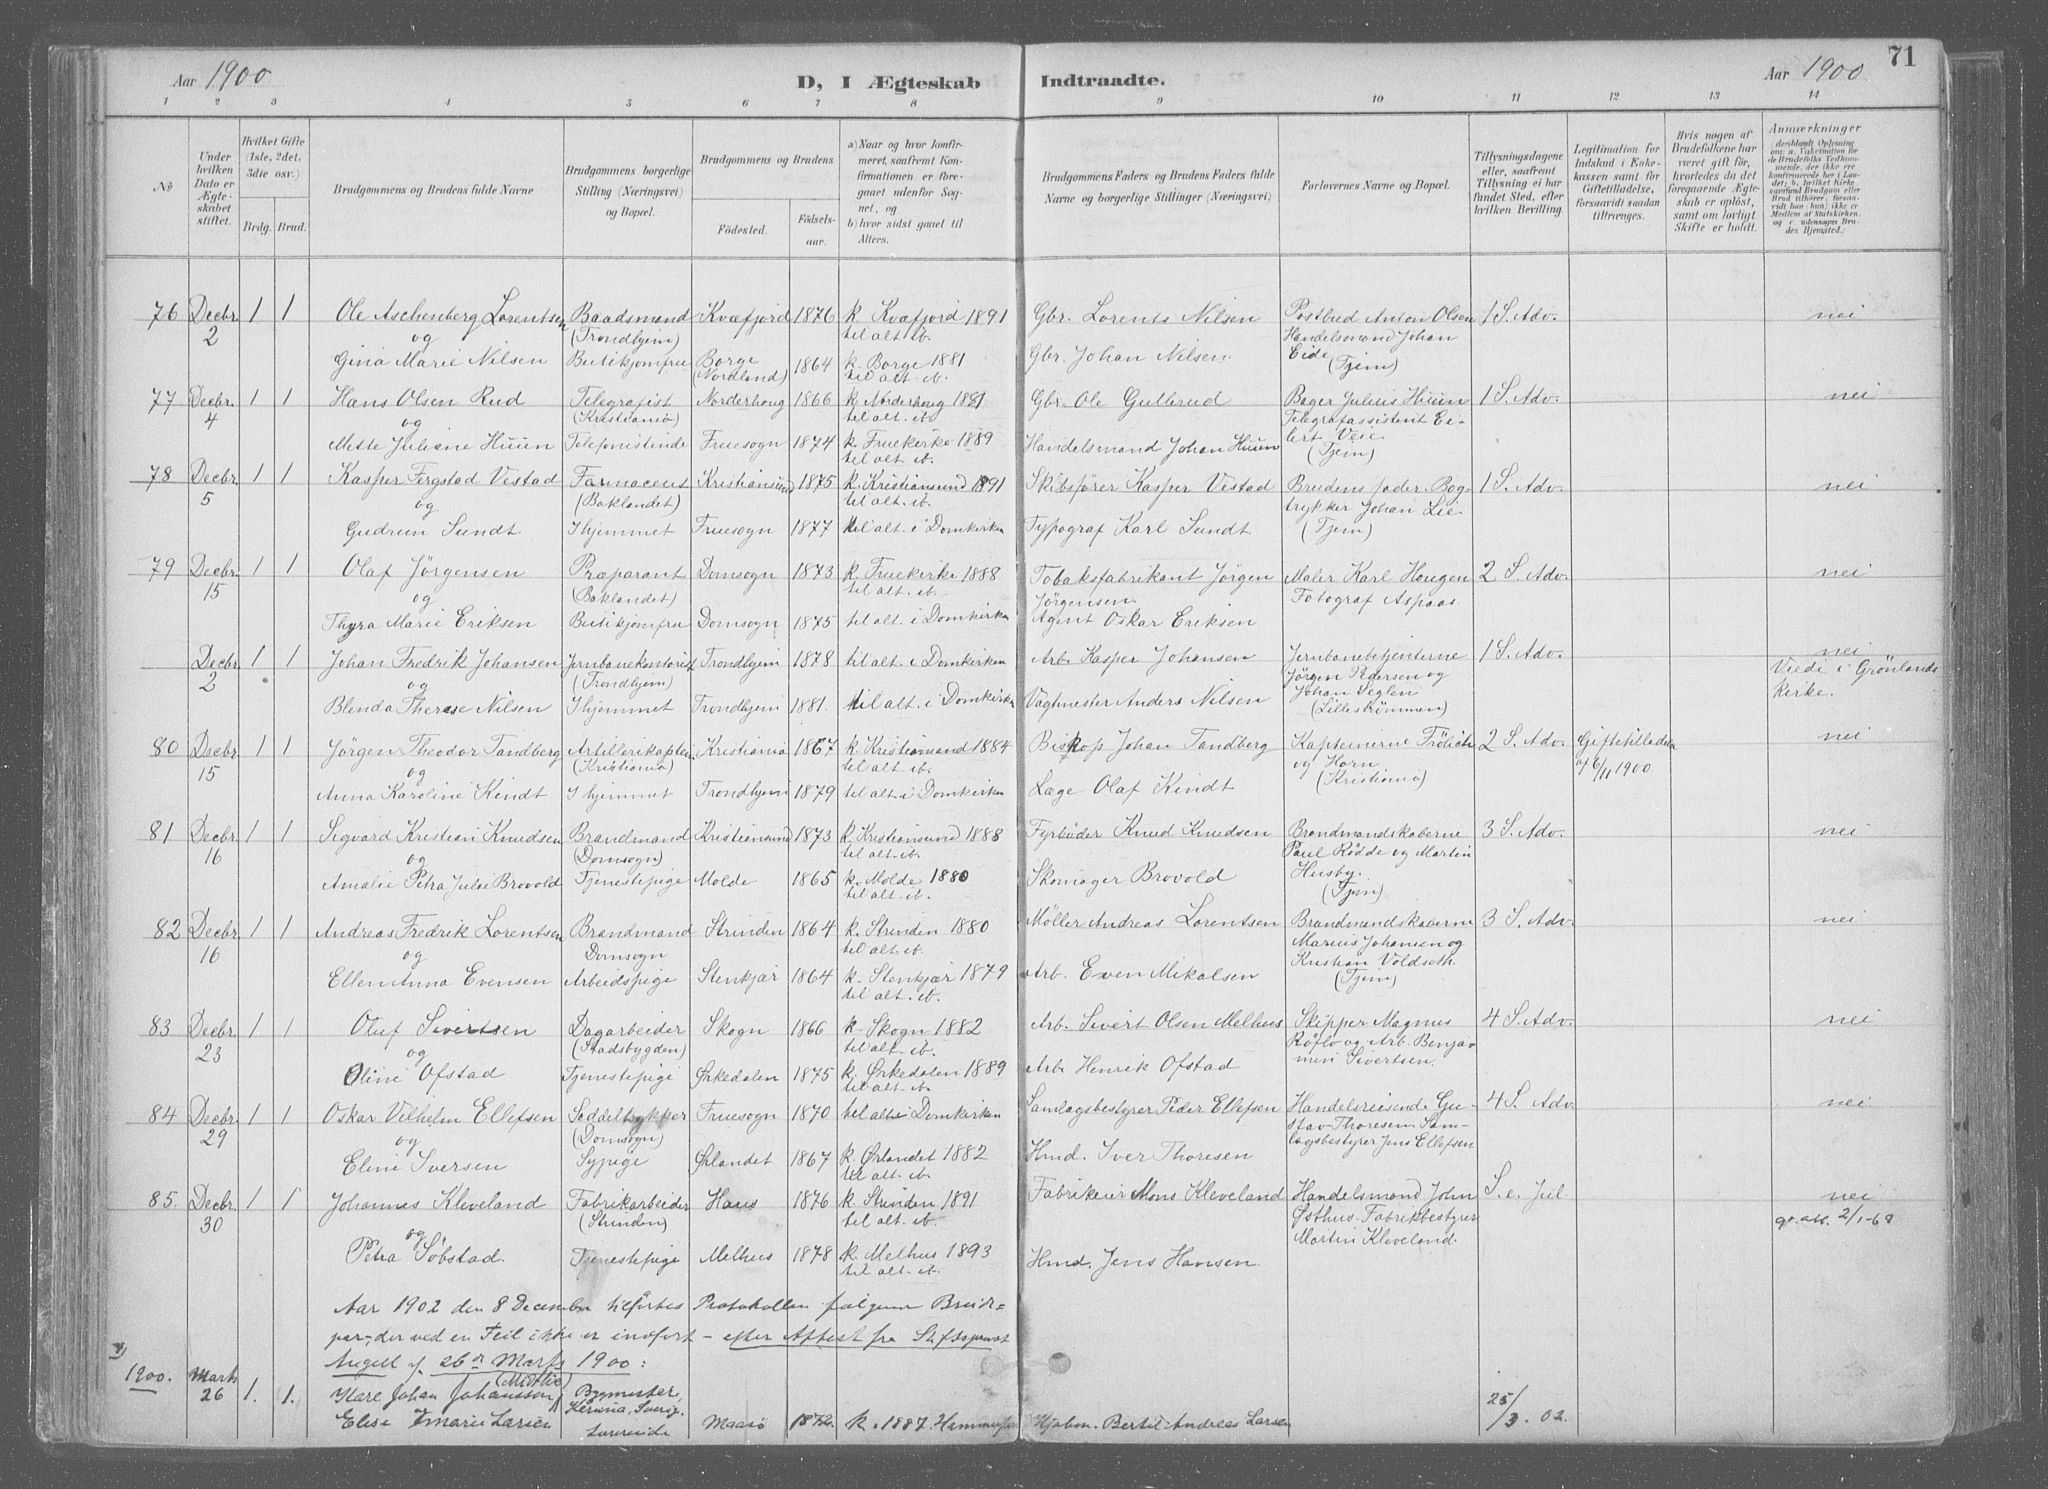 Aar 1900
D, I Ægteskab Indtraadte.
Aar 1900
71
1 2 3 4 5 6 7 8 9 10 11 12 13 14
No
Under hvilken Dato er Ægteskabet stiftet.
Hvilket Gifte (1ste, 2det, 3die osv.)
Brdg. Brud.
Brudgommens og Brudens fulde Navne
Brudgommens borgerlige Stilling (Næringsvei) og Bopæl.
Brudgommens og Brudens
Födested. Födselsaar.
a) Naar og hvor konfirmeret, saafremt Konfirmationen er foregaaet udenfor Sognet, og
b) hvor sidst gaaet til Alters.
Brudgommens Faders og Brudens Faders fulde Navne og borgerlige Stillinger (Næringsvei)
Forlovernes Navne og Bopæl.
Tillysningsdagene eller, saafremt Tillysning ei har fundet Sted, efter hvilken Bevilling.
Legitimation for Indskud i Enkekassen samt for Giftetilladelse, forsaavidt saadan tiltrænges.
Hvis nogen af Brudefolkene har været gift för, hvorledes da det foregaaende Ægteskab er oplöst, samt om lovligt Skifte er holdt.
Anmærkninger
(deriblandt Oplysning om: a. Vaksination for de Brudefolks Vedkommende, der ikke ere konfirmerede her i Landet; b. hvilket Kirkesamfund Brudgom eller Brud tilhörer, forsaavidt han (hun) ikke er Medlem af Statskirken, og c. udensogns Brudes Hjemsted.)
76 Decbr. 2 1 1 Ole Aschenberg Lorentsen Baadsmand (Trondhjem) Kvæfjord 1876 k. Kvæfjord 1891 til alt. ib. Gbr. Lorents Nilsen Postbud Anton Olsen 1 S. Adv. nei
og Handelsmand Johan Eide (Tjem)
Gina Marie Nilsen Butikjomfru Borge (Nordland) 1864 k. Borge 1881 til alt. ib. Gbr. Johan Nilsen
77 Decbr. 4 1 1 Hans Olsen Rud Telegrafist (Kristiania) Norderhoug 1866 k. Norderhoug 1881 til alt. ib. Gbr. Ole Gullerud Bager Julius Huün 1 S. Adv. nei
og Telegrafassistent Eilert Veie (Tjem)
Mette Juliane Huün Telefonistinde Fruesogn 1874 k. Fruekirke 1889 til alt. ib. Handelsmand Johan Huün
78 Decbr. 5 1 1 Kasper Fergstad Vestad Farmaceut (Baklandet) Kristiansund 1875 k. Kristiansund 1891 til alt. ib. Skibsfører Kasper Vestad Brudens fader. Bogtrykker Johan Lie (Tjem) 1 S. Adv. nei
og
Gudrun Sundt I hjemmet Fruesogn 1877 til alt. i Domkirken Typograf Karl Sundt
79 Decbr. 15 1 1 Olaf Jörgensen Præparant (Baklandet) Domsogn 1873 k. Fruekirke 1888 til alt. ib. Tobaksfabrikant Jörgen Jörgensen Maler Karl Haugen 2 S. Adv. nei
og Fotograf Aspaas.
Thyra Marie Eriksen Butikjomfru Domsogn 1875 til alt. i Domkirken Agent Oskar Eriksen
Decbr. 2 1 1 Johan Fredrik Johansen Jernbanekontorist (Trondhjem) Trondhjem 1878 til alt. i Domkirken Arb. Kasper Johansen Jernbanebetjenterne Jörgen Pedersen og Johan Seglen (Lilleströmmen) 1 S. Adv. nei
og Viede i Grönlands Kirke.
Blenda Therese Nilsen I hjemmet Trondhjem 1881. til alt. i Domkirken Vagtmester Anders Nilsen
80 Decbr. 15 1 1 Jörgen Theodor Tandberg Artillerikaptein (Kristiania) Kristiania 1867 k. Kristiansand 1884 til alt. ib. Biskop Johan Tandberg Kapteinerne Frölich og Horn (Kristiania) 2 S. Adv. Giftetilladelse af 6/11 1900. nei
og
Anna Karoline Kindt I hjemmet Trondhjem 1879 til alt. i Domkirken Læge Olaf Kindt
81 Decbr. 16 1 1 Sigvard Kristian Knudsen Brandmand (Domsogn) Kristiansund 1873 k. Kristiansund 1888 til alt. ib. Fyrbøder Knud Knudsen Brandmandskaberne Paul Rödde og Martin Husby. (Tjem) 3 S. Adv. nei
og
Amalie Petra Julie Brovold Tjenestepige Molde 1865 k. Molde 1880 til alt. ib. Skomager Brovold
82 Decbr. 16 1 1 Andreas Fredrik Lorentsen Brandmand Domsogn Strinden 1864 k. Strinden 1880 til alt. ib. Møller Andreas Lorentsen Brandmandskaberne Marius Johansen og Kristian Voldseth. (Tjem) 3 S. Adv. nei
og
Ellen Anna Evensen Arbeidspige Stenkjær 1864 k. Stenkjær 1879 til alt. ib. Arb. Even Mikalsen
83 Decbr. 23 1 1 Oluf Sivertsen Dagarbeider (Stadsbygden) Skogn 1866 k. Skogn 1882 til alt. ib. Arb. Sivert Olsen Melhus Skipper Magnus og Arb. Benjamin Sivertsen. 4 S. Adv. nei
og
Oline Ofstad Tjenestepige Ørkedalen 1875 k. Ørkedalen 1889 til alt. ib. Arb. Henrik Ofstad
84 Decbr. 29 1 1 Oskar Vilhelm Ellefsen Seddeltrykker (Domsogn) Fruesogn 1870 til alt. i Domkirken Samlagsbestyrer Peder Ellefsen Handelsreisende Gustav Thoresen Samlagsbestyrer Jens Ellefsen 4 S. Adv. nei
og
Eline Iversen Sypige Ørlandet 1867 k. Ørlandet 1882 til alt. ib. Hmd. Iver Thoresen
85. Decbr. 30 1 1 Johannes Kleveland Fabrikarbeider (Strinden) Haus 1876 k. Strinden 1891 til alt. ib. Fabrikeier Mons Kleveland Handelsmand John Østhus. Fabrikbestyrer Martin Kleveland. S. e. Jul. nei
og 2/1-68
Petra Søbstad. Tjenestepige Melhus 1878 k. Melhus 1893 til alt. ib. Hmd. Jens Hansen.
Aar 1902 den 8 December tilførtes Protokollen følgende Brudepar, der ved en Feil ikke er indført - efter Attest fra Stiftsprovst
Angell af 26de Marts 1900:
1900. Marts 26 1. 1. Kare Johan Johansson (Midtlie) Bygmester, Sverig.
og
Elise Marie Larsen Lærerinde Maasø 1872 k. 1887. Hammerfest Hjalm. Bertel Andreas Larsen 25/3. 02.